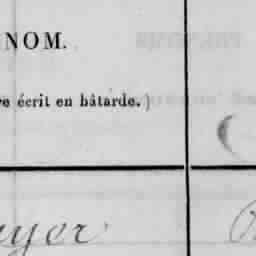 NOM.
re écrit en bâtarde.)
yer